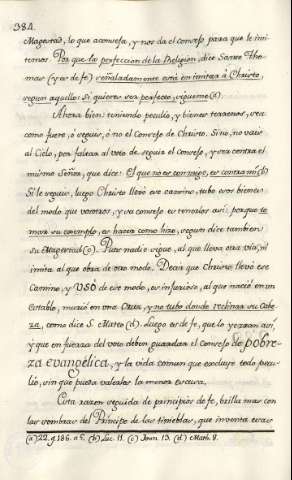 384.
Magestad, lo que aconseja, y nos da el consejo para que le imi-
temos. Por que la perfeccion de la Religion, dice Santo Tho-
mas (y es de fe) señaladamente está en imitar à Christo,
segun aquello: Si quieres ser perfecto, sigueme (a).
Ahora bien: teniendo peculio, y bienes terrenos, sea
como fuere, ò seguis, ò no el Consejo de Christo. Sino, no vais
al Cielo, por faltar al voto de seguir el consejo, y sea contra el
mismo Señor, que dice: El que no es conmigo, es contra mi (b)
Si le seguis, luego Christo llevó ese camino, tubo esos bienes
del modo que vosotros, y su consejo es tenerlos asi; porque to-
mar su exemplo, es hacer como hizo, segun dice tambien
su Magestad (c). Pues nadie sigue, al que lleva otra via, ni
imita al que obra de otro modo. Decir que Christo llevó ese
Camino, y USÓ de ese modo, es infarioso, al que nació en un
establo, murió en una Cruz, y no tubo donde reclinar su Cabe-
za, como dice S. Mateo (d). Luego es de fe, que lo yerran asi,
y que en fuerza del voto deben guardar el consejo de pobre-
za evangélica, y la vida comun que excluye todo pecu-
lio, sin que pueda valerles la menor escusa.
Esta razon seguida de principios de fe, brilla mas con
las sombras del Principe de las tinieblas, que inventa esas
(a) 22. q. 186. a 5. (b) Luc. 11. (c) Joan. 13. (d) Math. 8.